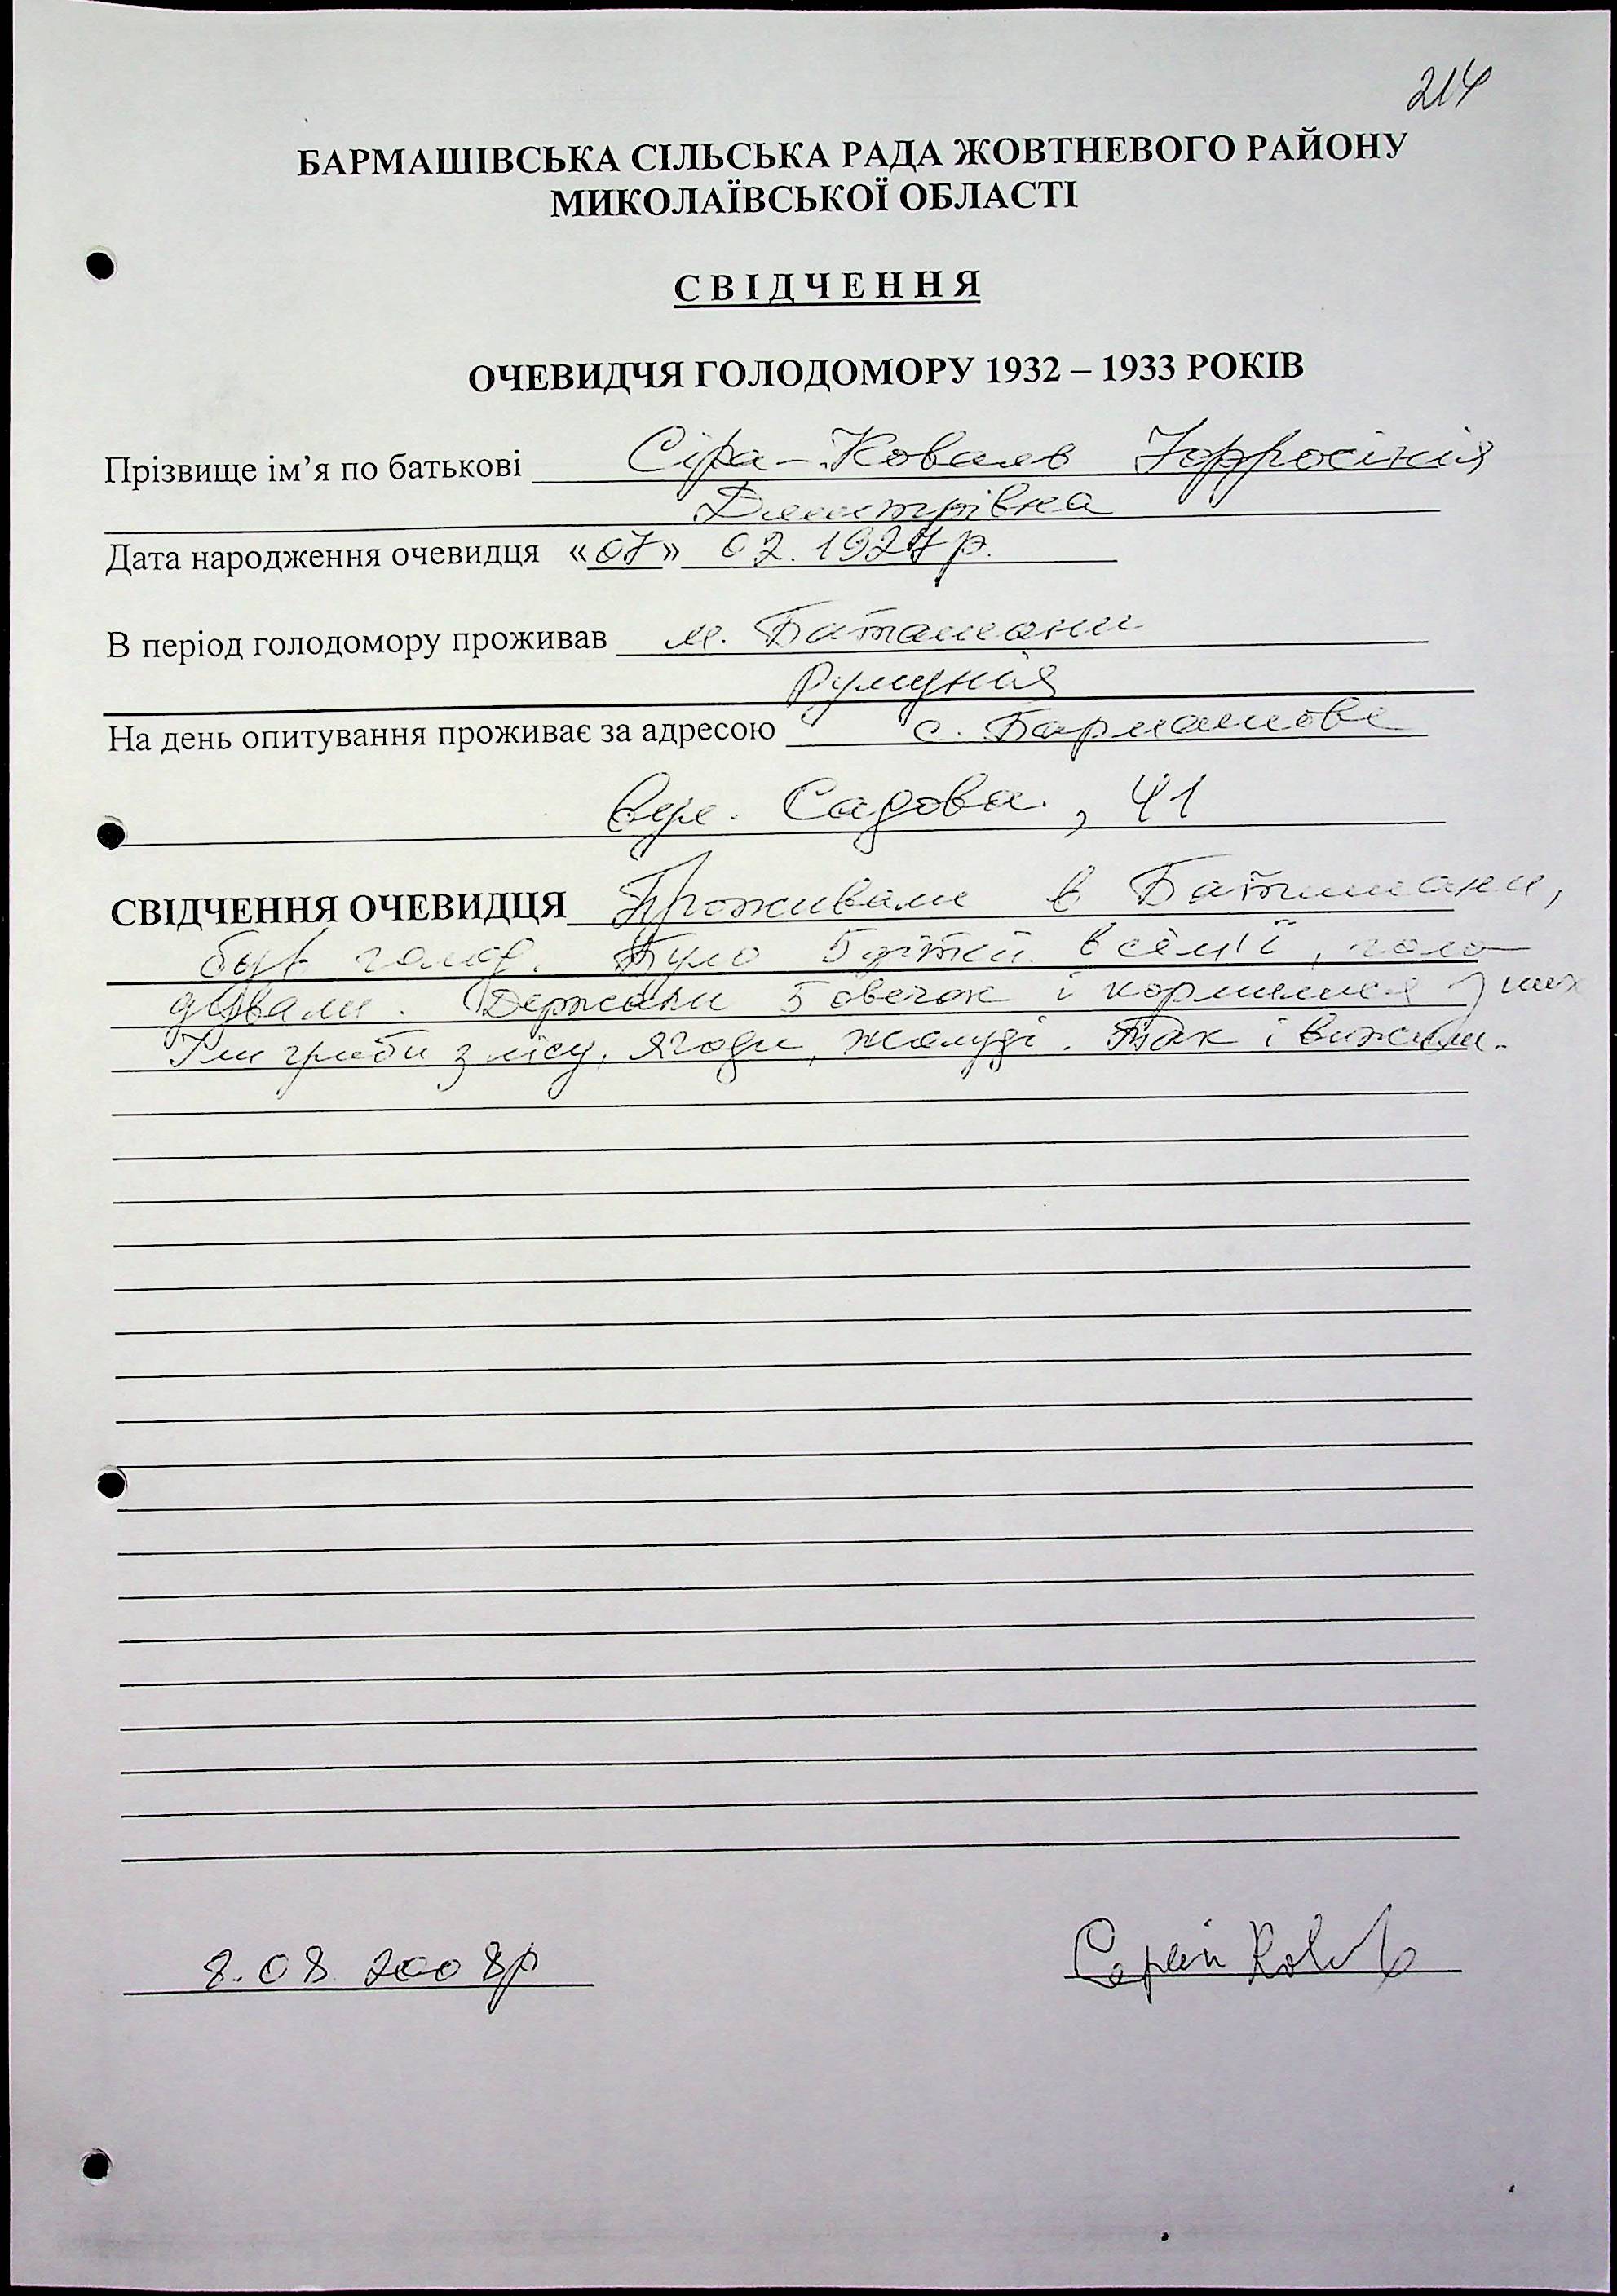 214
БАРМАШІВСЬКА СІЛЬСЬКА РАДА ЖОВТНЕВОГО РАЙОНУ
МИКОЛАЇВСЬКОЇ ОБЛАСТІ
СВІДЧЕННЯ
ОЧЕВИДЧЯ ГОЛОДОМОРУ 1932 – 1933 РОКІВ
Прізвище ім’я по батькові Сіра-Коваль
Дмитрівна
Дата народження очевидця «07» 02. 1927р.
В період голодомору проживав м.
Румунія
На день опитування проживає за адресою с. Бармашове
вул. Садова, 41
СВІДЧЕННЯ ОЧЕВИДЦЯ Проживали в
був голод. Було 5 дітей в сім'ї, голо
дували. Держали 5 овечок і кормилися з них
Їли гриби з лісу, ягоди, жолуді. Так і вижили.
8.08.2008р